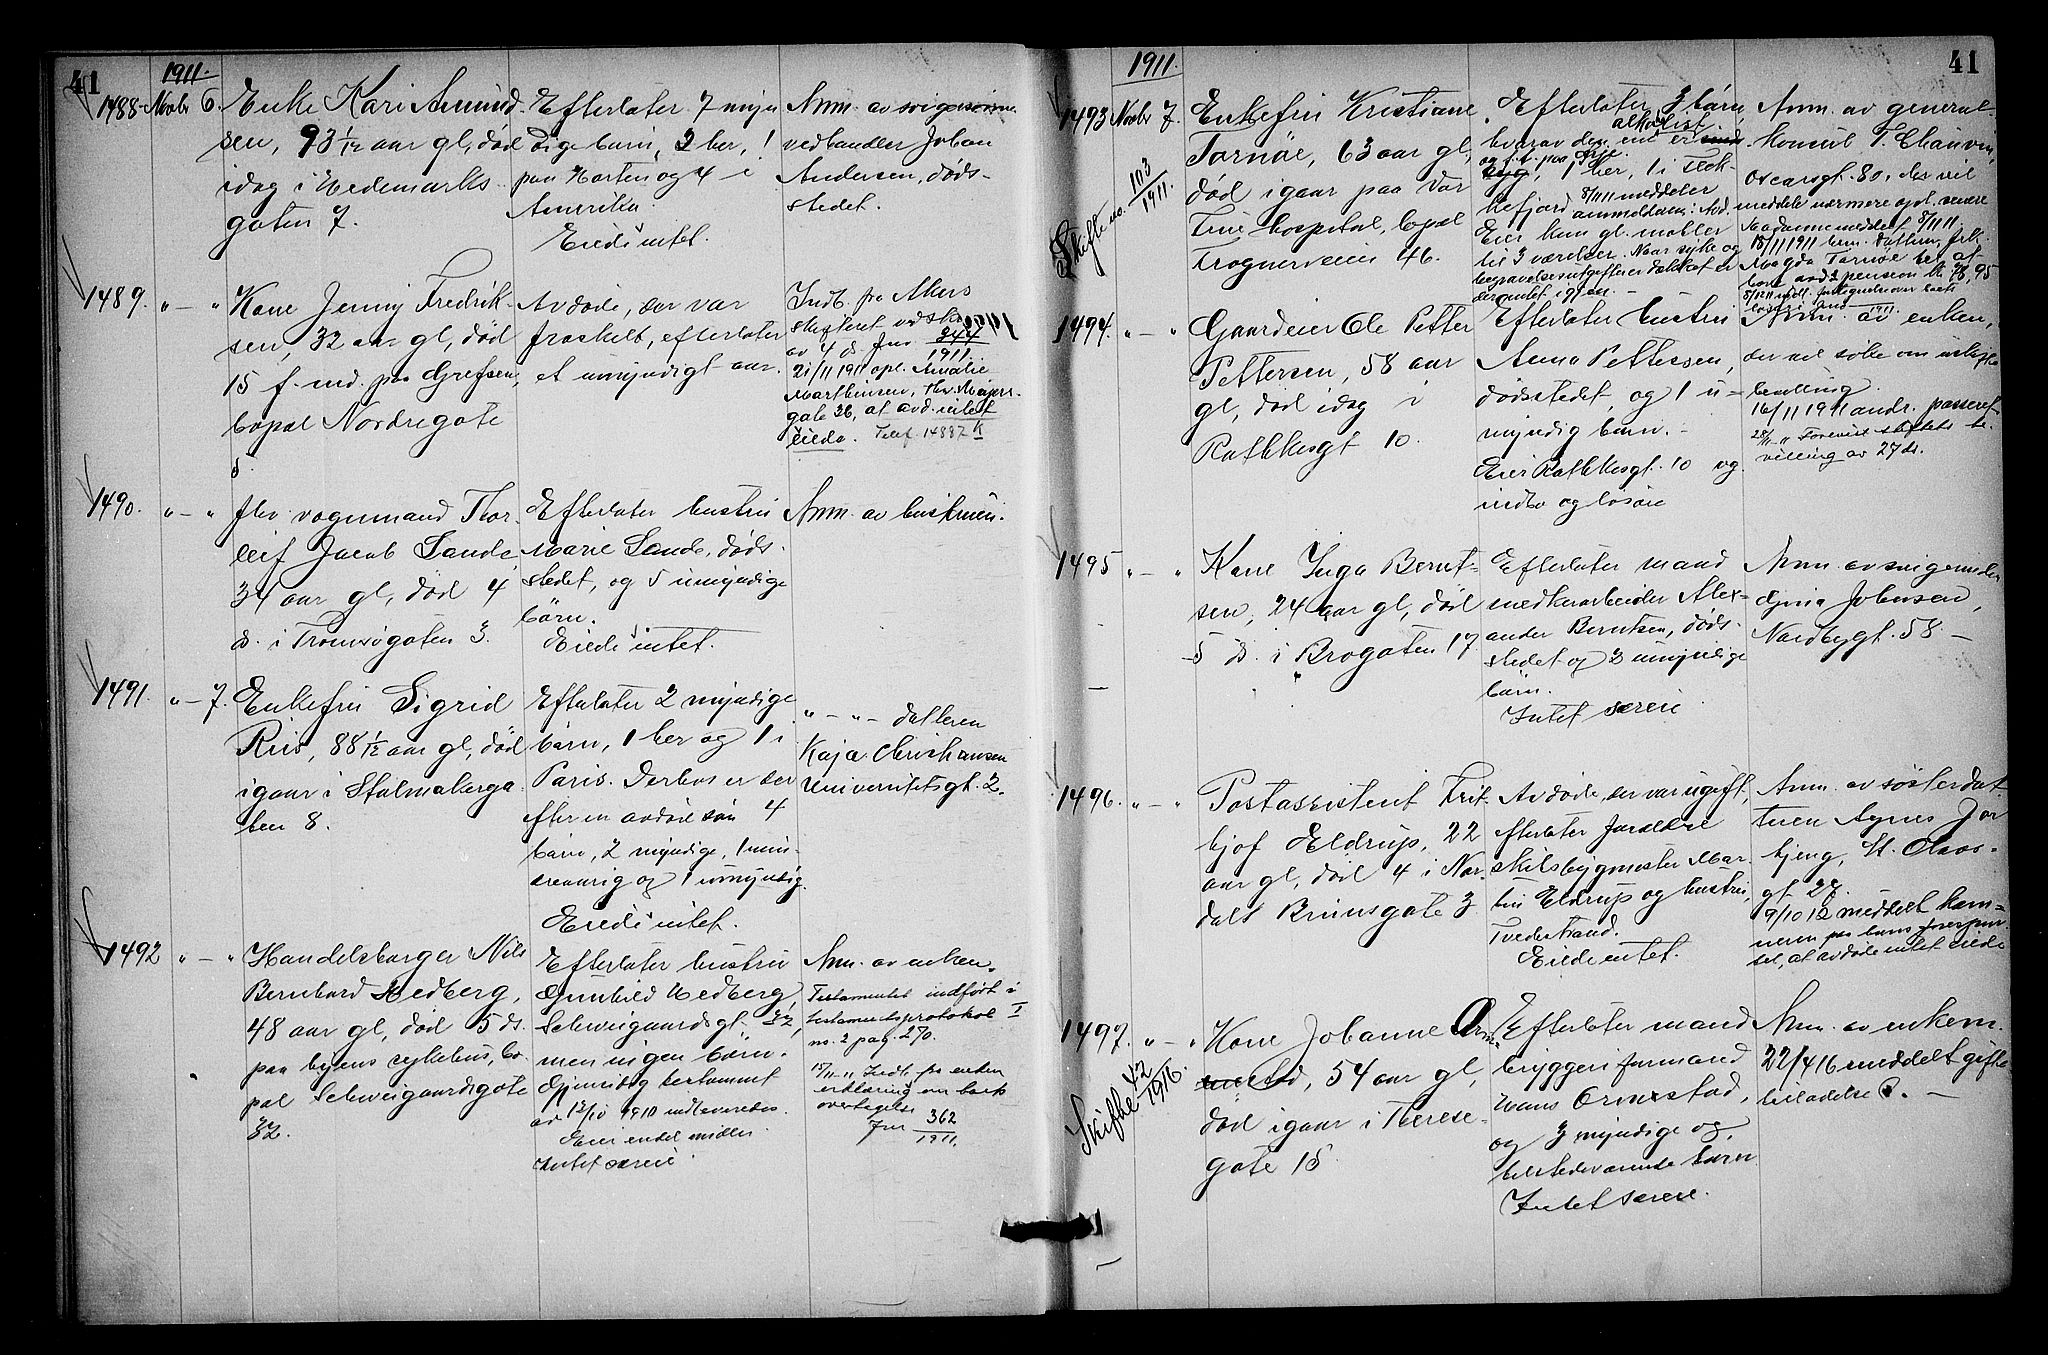 41
1911.
1488 Novbr 6. Enke Kari Amund-
sen, 93 1/12 aar gl, død
idag i Hedemarks-
gaten 7.
Efterlater 7 myn
dige barn, 2 her, 1
paa Horten og 4 i
Amerika.
Eied intet.
Anm. av svigersönn
vedhandler Johan
Andersen, døds-
stedet.
1489. " — " Kone Jenny Fredrik-
sen, 32 aar gl, død
15 f. md. paa Grefsen,
bopæl Nordregate
5.
Avdøde, der var
fraskilt, efterlater
et umyndigt barn.
Indb. fra Akers
av 4 ds. Jnr 344
1911.
21/11 1911 opl. Amalie
Marthinsen, Thv. Meyers-
gate 36, at avd. intet
eiede. Telef. 14887
1490. " — " fhv. vognmand Thor-
leif Jacob Sande
34 aar gl, død 4
ds. i Tromsögaten 3.
Efterlater hustru
Marie Sande, døds-
stedet, og 5 umyndige
børn.
Eied intet.
Anm. av hustruen.
1491. " — 7. Enkefru Sigrid
Riis, 88 1/12 aar gl, død
igaar i Stolmakerga-
ten 8.
Efterlater 2 myndige
børn, 1 her og 1 i
Paris. Derhos er der
efter en avdøe søn 4
børn, 2 myndige, 1 min-
dreaarig og 1 umyndig.
Eied intet.
" — " — datteren
Kaja Christiansen
Universitetsgt. 2.
1492 " — " Handelsborger Nils
Bernhard Hedberg,
48 aar gl, død 5 ds.
paa byens sykehus, bo-
pæl Schweigaardsgate
32.
Efterlater hustru
Gunhild Hedberg,
Schweigaardsgt. 32,
men ingen børn.
Gjensidig testament
av 12/10 1910 indleveredes.
Eier endel midler.
Intet særeie.
Anm. av enken.
Testamentet indført i
testamentsprotokol I
no. 2 pag. 270.
15/11 " Indb. fra enken
erklæring om boets
overtagelse
Jnr 362
1911.
41
1911.
1493 Novbr 7. Enkefru Kristiane
Tornöe, 63 aar gl,
død igaar paa Vor
Frue hospital, bopæl
Frognerveien 46.
Skifte no. 103
1911.
Efterlater 3 børn,
hvorav den ene er
alkoholist
1 her, 1 i Flek-
kefjord 8/11 11 meddeler
anmelderen: Avd.
Eier kun gl. møbler
til 3 værelser. Naar syke og
begravelsesutgifter er dækket er
der intet igjen. —
Anm. av general-
konsul T. Chauven,
Oscarsgt. 80, der vil
meddele nærmere opl. senere
18/11 1911 bem. datteren, frk.
Magda Tornöe
1494. " — " Gaardeier Ole Petter
Pettersen, 58 aar
gl, død idag i
Rathkesgt 10.
Efterlater hustru
Anna Pettersen,
dødsstedet, og 1 u-
myndig barn. -
Eier Rathkesgt. 10 og
indbo og løsøre
Anm. av enken,
der vil søke om uskifte
bevilling.
16/11 1911 andr. passeret
28/11 " Forevist skiftets be-
villing av 27 ds.
1495 " — " Kone Inga Bernt-
sen, 24 aar gl, død
5 ds. i Brogaten 17.
Efterlater mand
snedkerarbeider Alex-
ander Berntsen, døds-
stedet og 3 umyndige
børn.
Intet særeie
Anm. av svigerinden
Gina Johnsen,
Nordbygt. 58. —
1496. " — " Postassistent Frit-
hjof Eldrup, 22
aar gl, død 4 i Nor-
dals Brunsgate 3
Avdøde, der var ugift,
efterlater forældre
skibsbygmester Mar-
tin Eldrup og hustru,
Tvedestrand.
Eiede intet.
Anm. av søsterdat-
teren Agnes Jor
kjeng, St. Olavs-
gt 27.
9/10 12 meddelt kam-
neren paa hans forespør-
sel, at avdøde intet eiede
1497. " — " Kone Johanne Orm-
stad, 54 aar gl,
død igaar i Therese-
gate 15
Skifte 42
1916.
Efterlater mand
bryggeriformand
Hans Ormstad,
og 3 myndige og
tilstedeværende børn
Intet særeie.
Anm. av enkem.
22/4 16 meddelt gifte
tilladelse. —